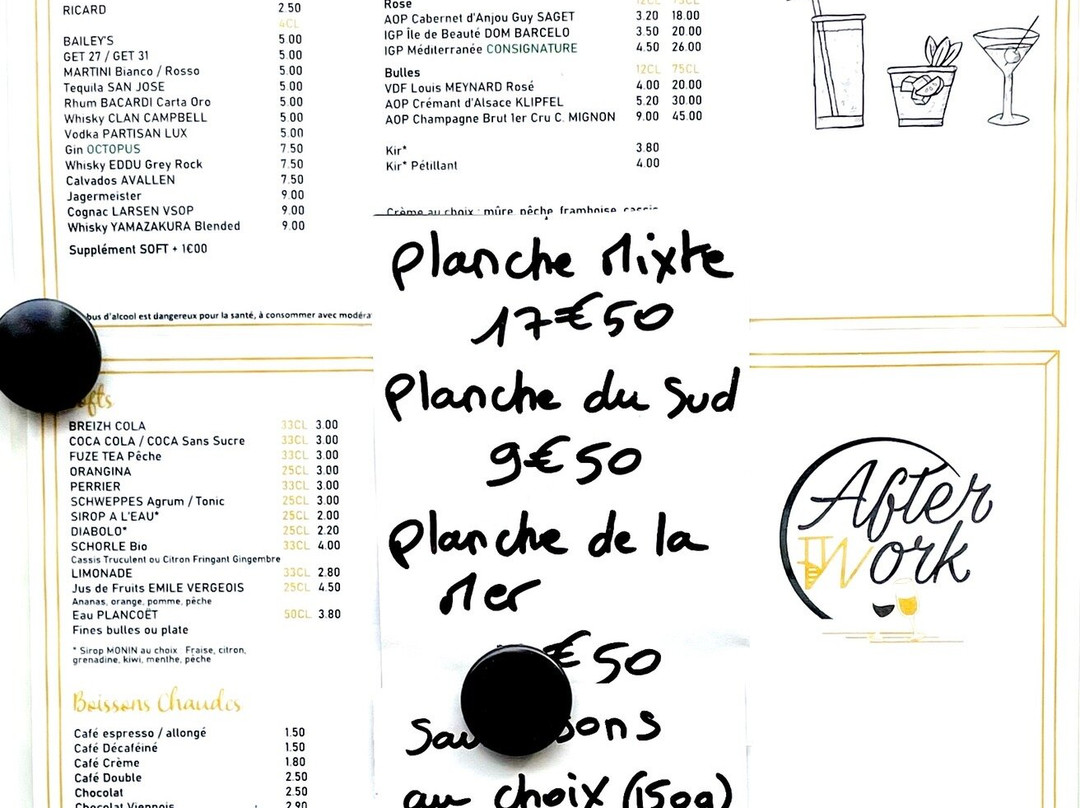 RICARD 2.50
4CL
BAILEY'S 5.00
GET 27 / GET 31 5.00
MARTINI Bianco / Rosso 5.00
Tequila SAN JOSE 5.00
Rhum BACARDI Carta Oro 5.00
Whisky CLAN CAMPBELL 5.00
Vodka PARTISAN LUX 5.00
Gin OCTOPUS 7.50
Whisky EDDU Grey Rock 7.50
Calvados AVALLEN 7.50
Jagermeister 9.00
Cognac LARSEN VSOP 9.00
Whisky YAMAZAKURA Blended 9.00
Supplément SOFT + 1€00
bus d'alcool est dangereux pour la santé, à consommer avec modéra
Rosé 12CL 75CL
AOP Cabernet d'Anjou Guy SAGET 3.20 18.00
IGP Île de Beauté DOM BARCELO 3.50 20.00
IGP Méditerranée CONSIGNATURE 4.50 26.00
Bulles 12CL 75CL
VDF Louis MEYNARD Rosé 4.00 20.00
AOP Crémant d'Alsace KLIPFEL 5.20 30.00
AOP Champagne Brut 1er Cru C. MIGNON 9.00 45.00
Kir* 3.80
Kir* Pétillant 4.00
Crème au choix : mûre, pêche, framboise, cassis
Planche Mixte
17€50
Planche du Sud
9€50
Planche de la
Mer
€50
Sau sons
au choix (150g)
fts
BREIZH COLA 33CL 3.00
COCA COLA / COCA Sans Sucre 33CL 3.00
FUZE TEA Pêche 33CL 3.00
ORANGINA 25CL 3.00
PERRIER 33CL 3.00
SCHWEPPES Agrum / Tonic 25CL 3.00
SIROP A L'EAU* 25CL 2.00
DIABOLO* 25CL 2.20
SCHORLE Bio 33CL 4.00
Cassis Truculent ou Citron Fringant Gingembre
LIMONADE 33CL 2.80
Jus de Fruits EMILE VERGEOIS 25CL 4.50
Ananas, orange, pomme, pêche
Eau PLANCOËT 50CL 3.80
Fines bulles ou plate
* Sirop MONIN au choix Fraise, citron,
grenadine, kiwi, menthe, pêche
Boissons Chaudes
Café espresso / allongé 1.50
Café Décaféiné 1.50
Café Crème 1.80
Café Double 2.50
Chocolat 2.50
Chocolat Viennois 2.90
After
Work